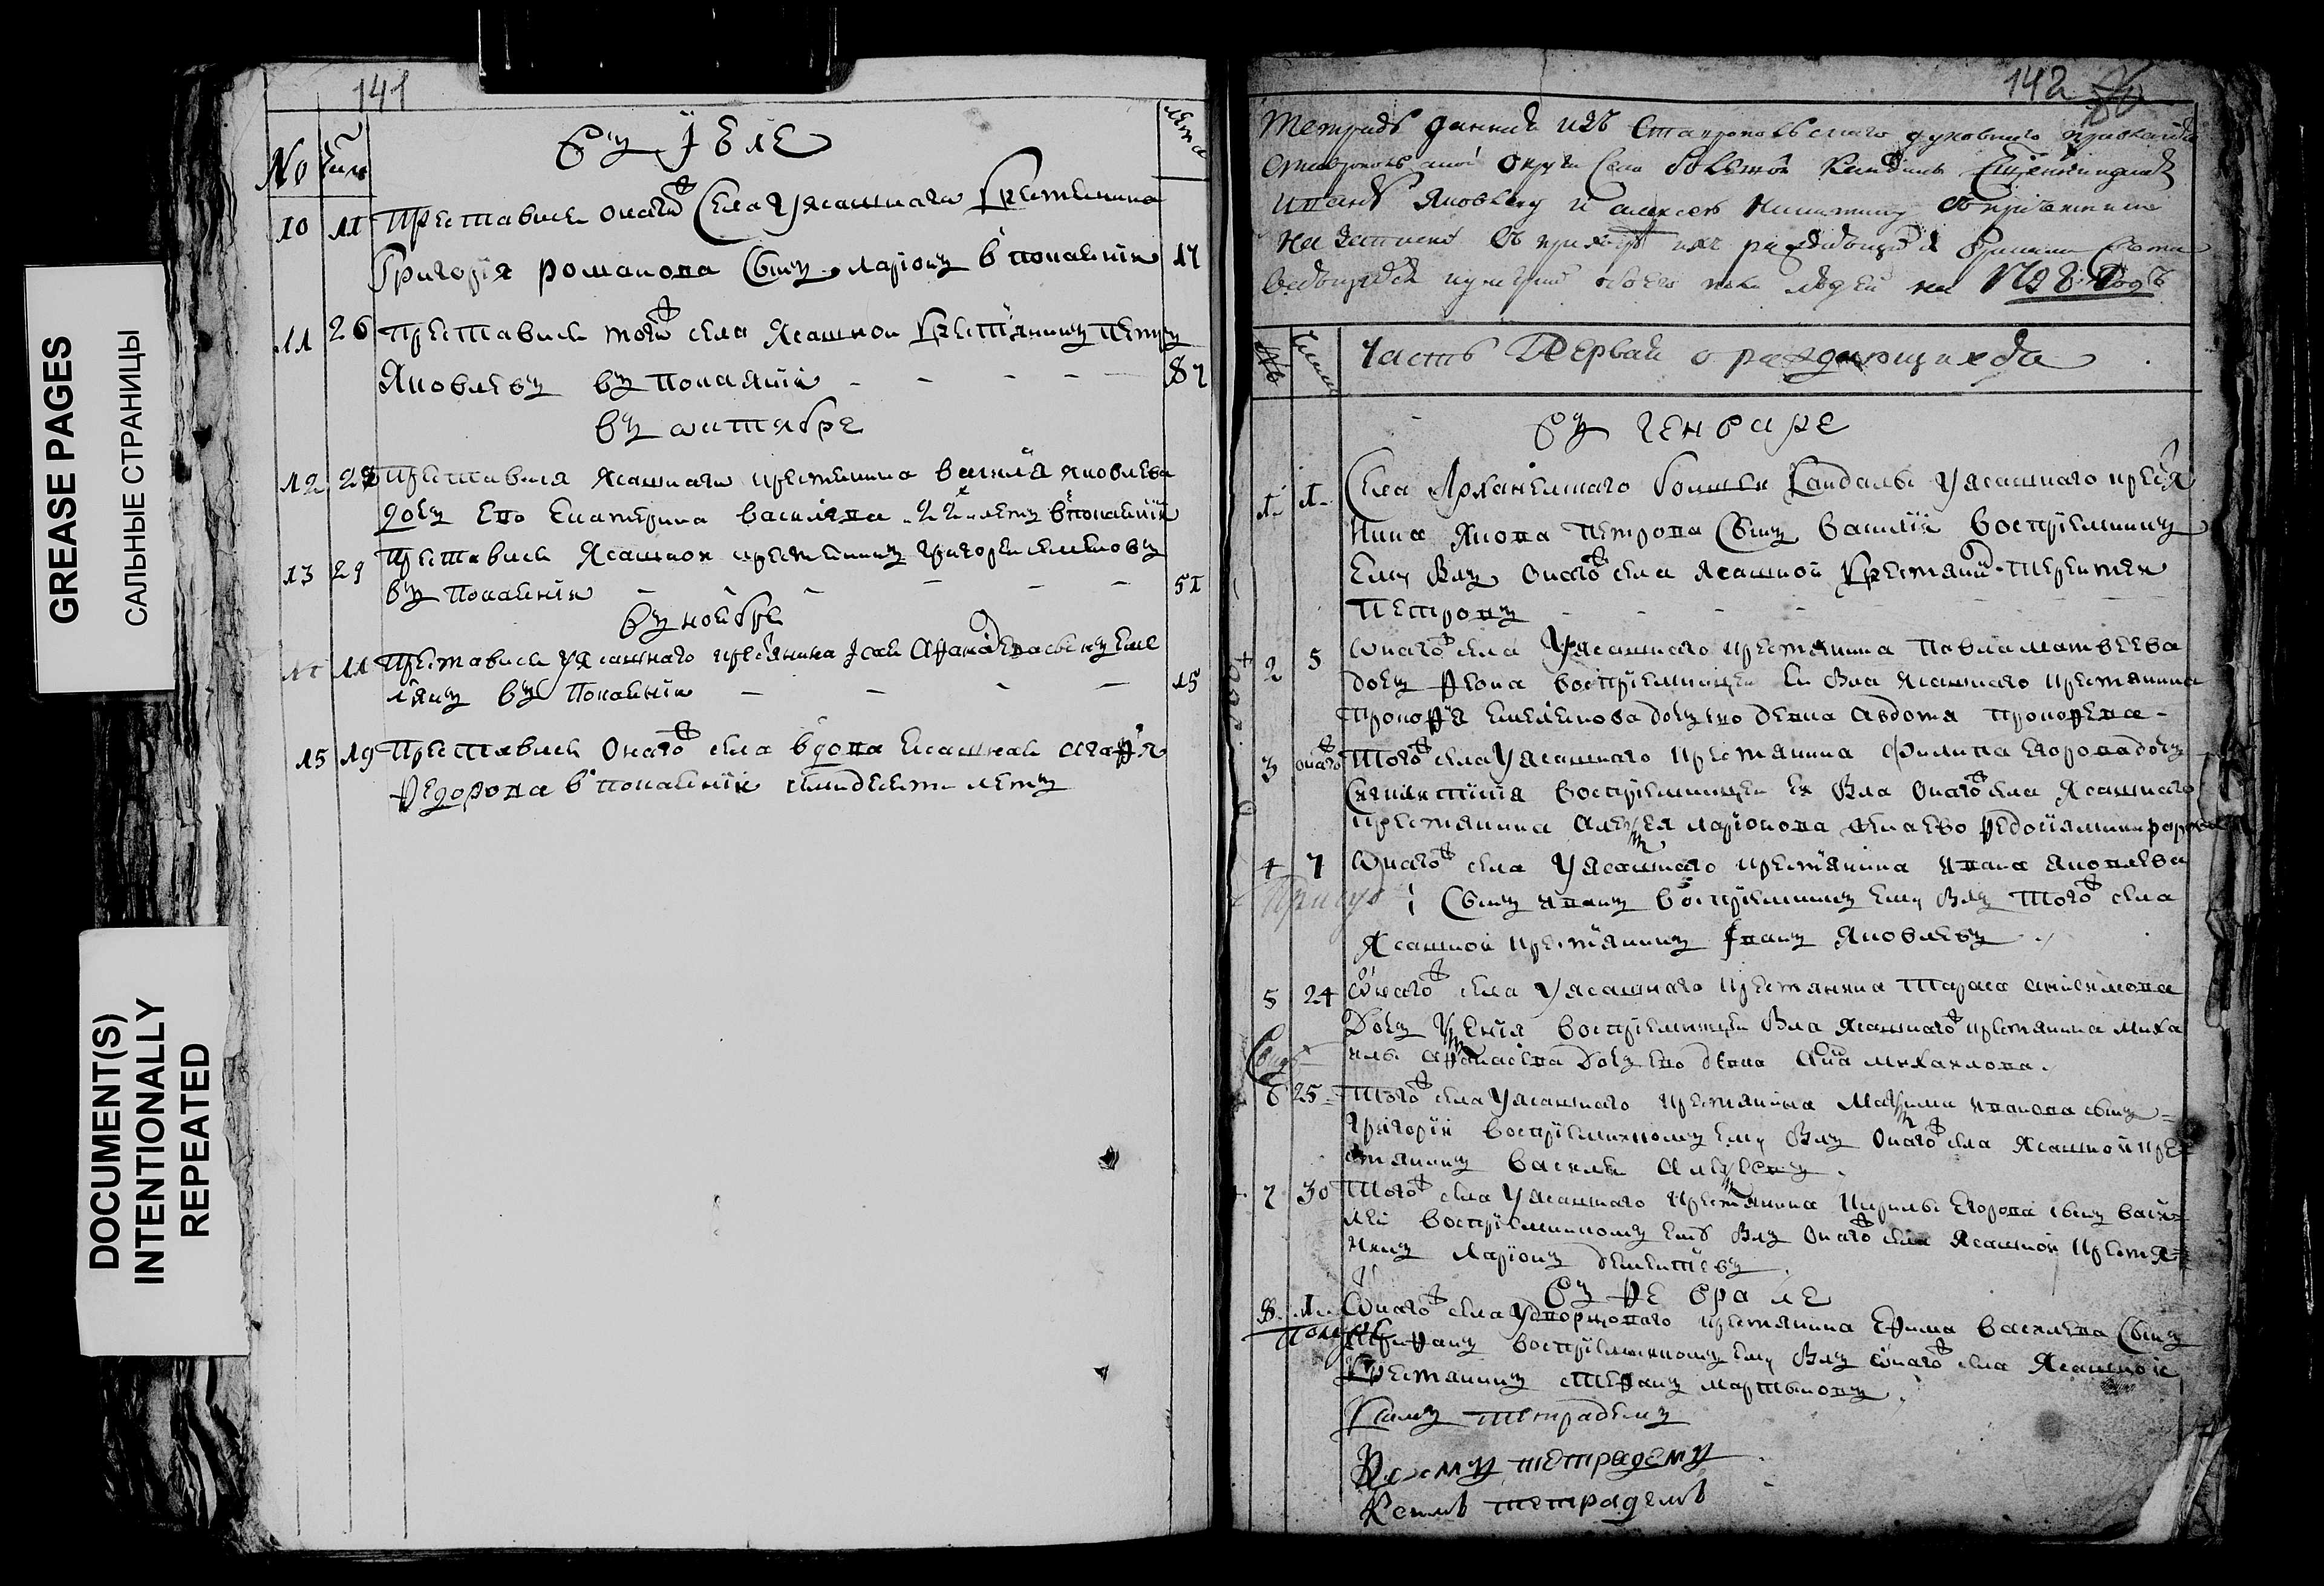 GREASE PAGES
САЛЬНЫЕ СТРАНИЦЫ
DOCUMENT(S)
INTENTIONALLY
REPEATED
141
№ числ лета
въ Іюле
10 11 Преставися онагѡ села ꙋ ясашнаго крестьянина
Григорїя романова сынъ ларїонъ в покаянїи 17
11 26 преставися тогѡ села ясашной крестьянинъ петръ
Яковлевъ въ покаянїи - - - - 87
въ октябре
12 28 преставися ясашнаго крестьянина василїя яковлева
дочь ево Екатерина васильева 22 летъ в покаянїи
13 29 Преставися ясашной крестьянинъ григорей семеновъ
въ покаянїи - - - - 51
въ ноябре
11 Преставися ꙋ ясашнаго крестьянина сынъ Еме
лянъ въ покаянїи - - - - 15
15 19 Преставися онагѡ села вдова ясашная агафїя
Федорова в покаянїи семдесяти летъ
142
Тетрадь данная изъ Ставропольскаго духовнаго правленїя
Ставропольской округи села большой кандалы священникамъ
Ивану Яковлеву и алексею Никитину съ причетники
на записку въ приходе ихъ раждающихся браками сочета
вающихся и умершихъ обоего пола людей на 1798 годъ
№ числ Часть Первая о раждающихся
въ генваре
1 1 Села Арханелскаго болшей Кандалы ꙋ ясашнаго крестья
нина Якова петрова сынъ василїй воспрїемникъ
емꙋ былъ онагѡ села ясашной крестьянинъ терентей
петровъ - - - - -
2 5 Ѡнагѡ села ꙋ ясашнаго крестьянина павла матвеева
дочь Фекла воспрїемницею ей была ясашнаго крестьянина
прокофїя емелянова дочь ево девка авдотя прокофева
3 онагѡ Тогѡ села ꙋ ясашнаго крестьянина филипа егорова дочь
воспрїемницею ей была онагѡ села ясашнаго
крестьянина алексея ларїонова жена ево
4 7 Ѡнагѡ села ꙋ ясашнаго крестьянина ивана яковлева
сынъ иванъ воспрїемникъ емꙋ былъ тогѡ села
Ясашной крестьянинъ Іванъ Яковлевъ
5 24 Ѡнагѡ села ꙋ ясашнаго крестьянина тараса анисимова
дочь ксенїя воспрїемницею была ясашнагѡ крестьянина миха
илы афанасева дочь ево девка Анна михаилова.
6 25 Тогѡ села ꙋ ясашнаго крестьянина Максима иванова сынъ
Григорїи воспрїемникомъ емꙋ былъ онагѡ села ясашной кре
стьянинъ василеи алексеевъ.
7 30 Тогѡ села ꙋ ясашнаго крестьянина кирилы егорова сынъ васи
леи воспрїемникомъ емꙋ былъ онагѡ села ясашной крестья
нинъ ларїонъ дементїевъ.
въ Феврале
8 1 Ѡнагѡ села ꙋ дворцоваго крестьянина Ефима василева сынъ
воспрїемникомъ емꙋ былъ ѡнагѡ села Ясашной
крестьянинъ стефанъ мартыновъ.
Ксемꙋ тетрадемꙋ
Ксемꙋ тетрадемꙋ